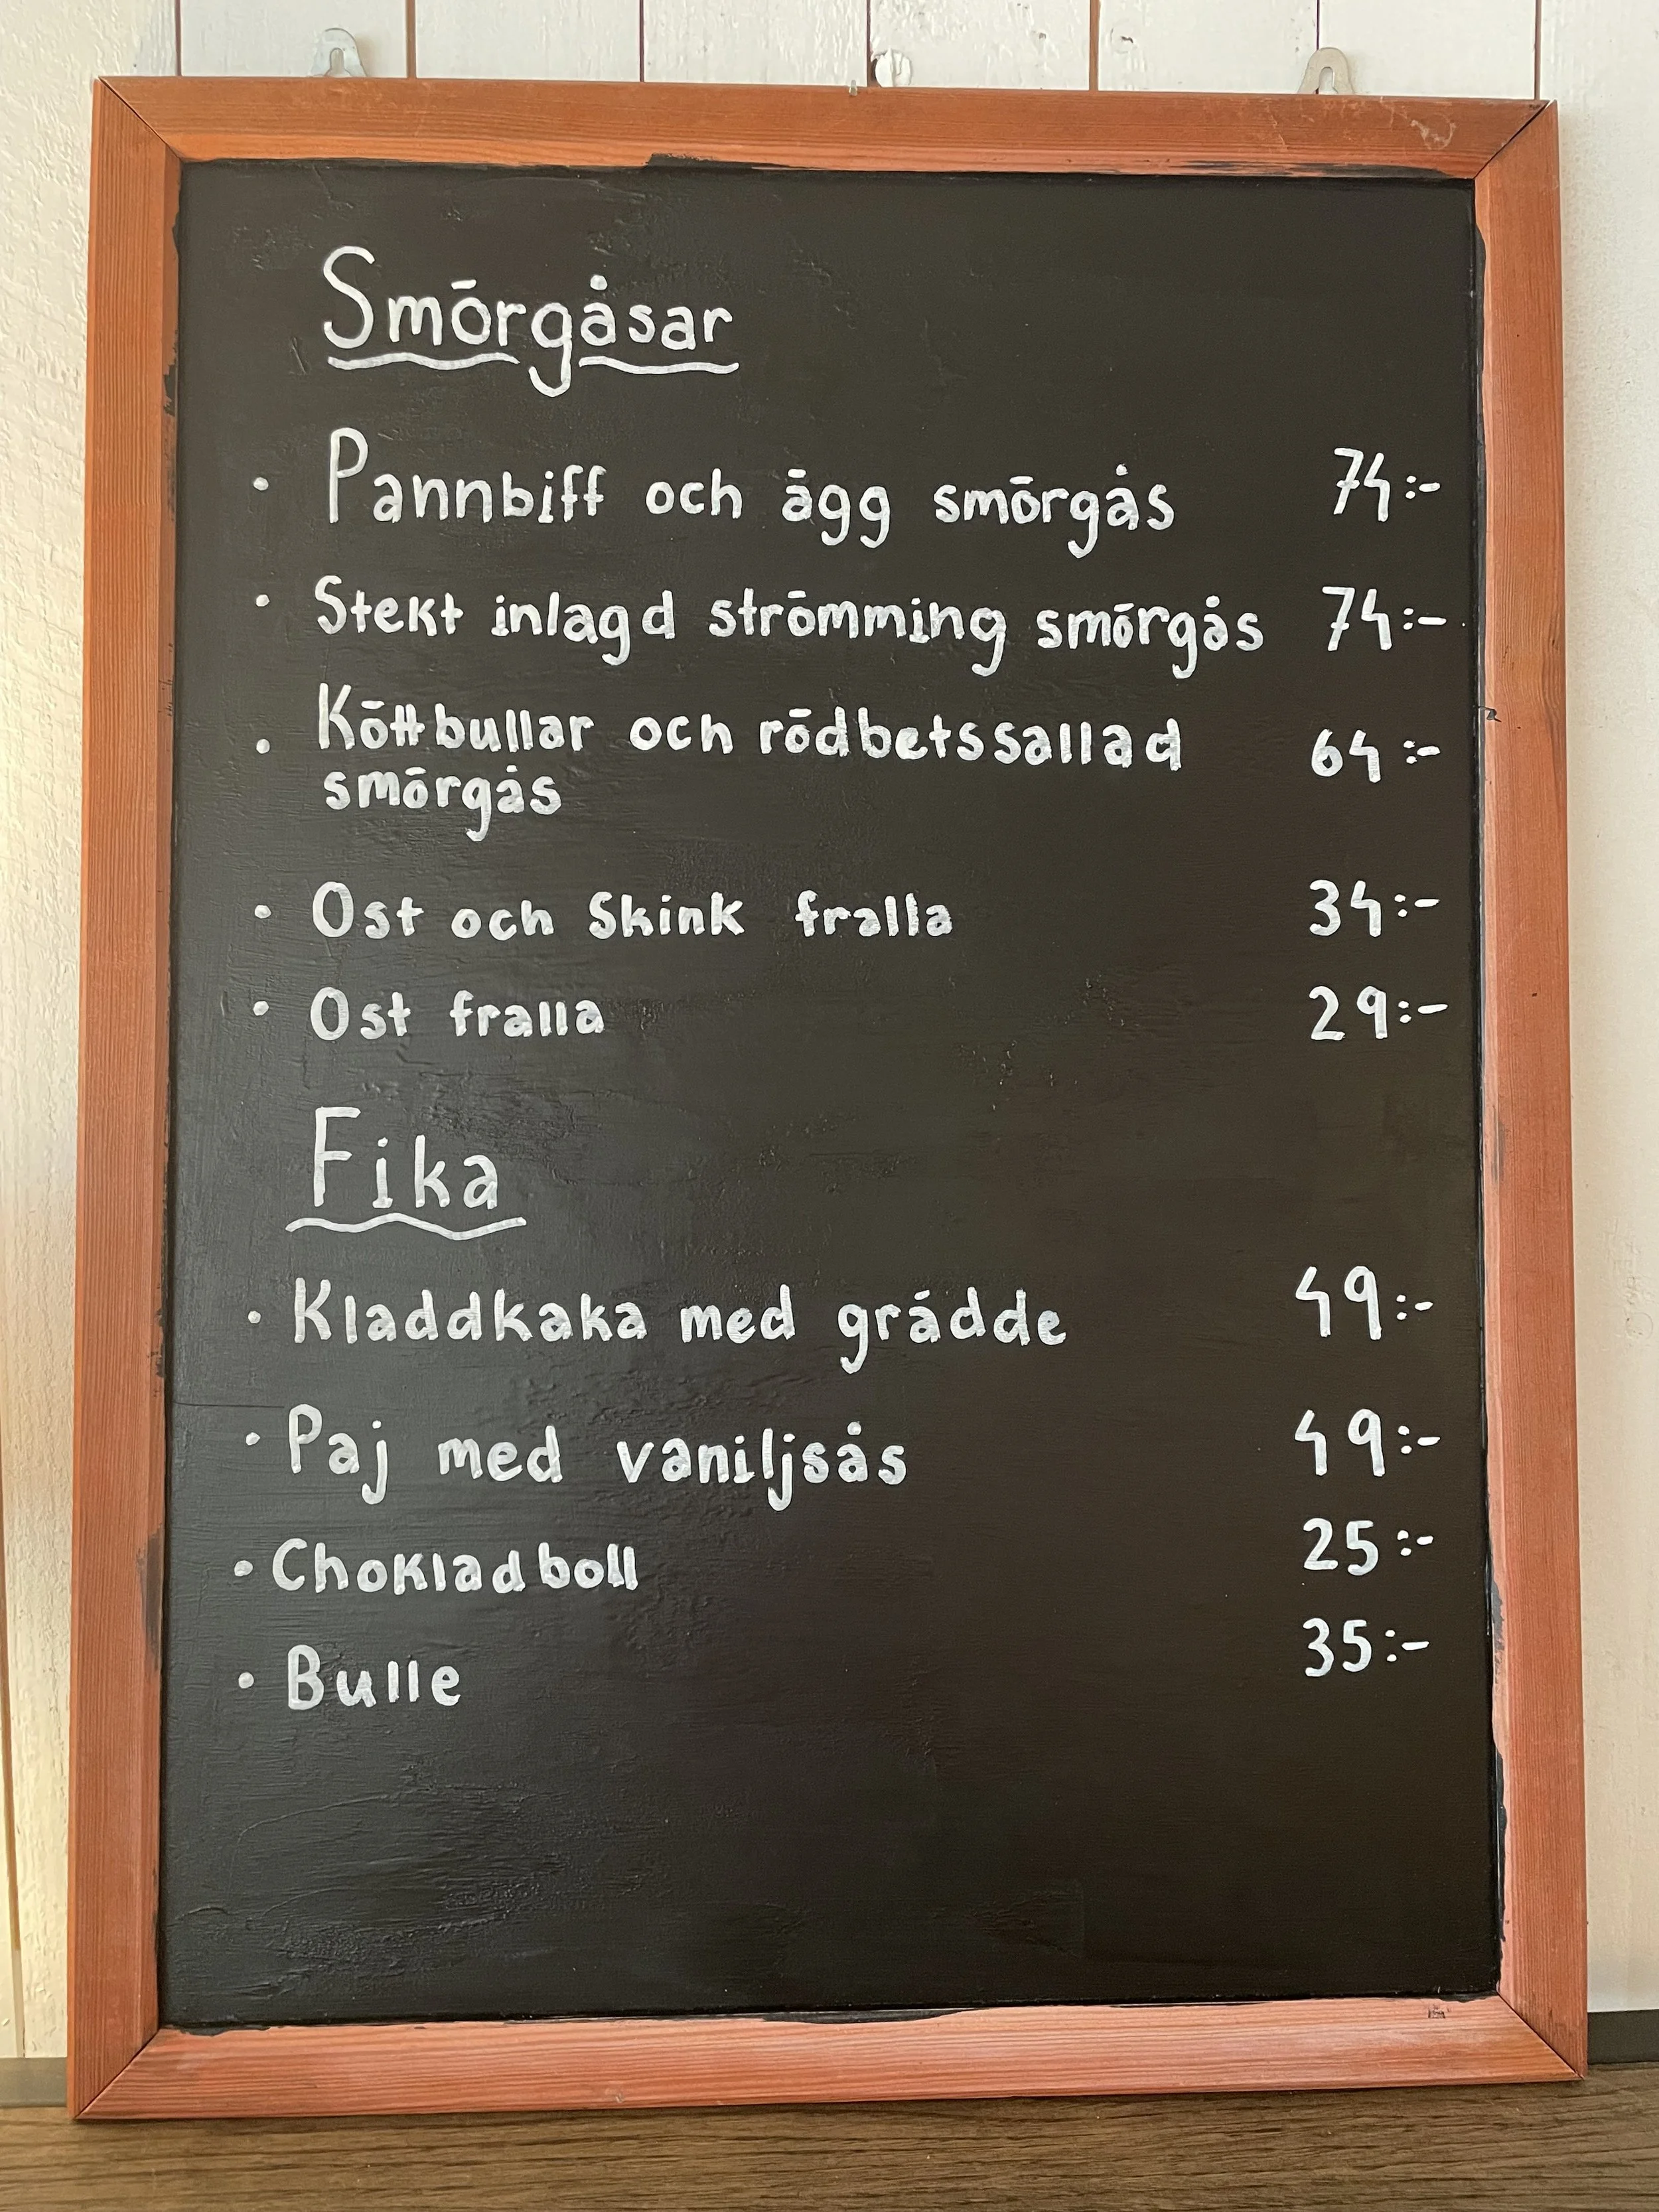 Smörgåsar
• Pannbiff och ägg smörgås 74:-
• Stekt inlagd strömming smörgås 74:-
• Köttbullar och rödbetssallad 64:-
smörgås
• Ost och Skink fralla 34:-
• Ost fralla 29:-
Fika
• Kladdkaka med grädde 49:-
• Paj med vaniljsås 49:-
• Chokladboll 25:-
• Bulle 35:-